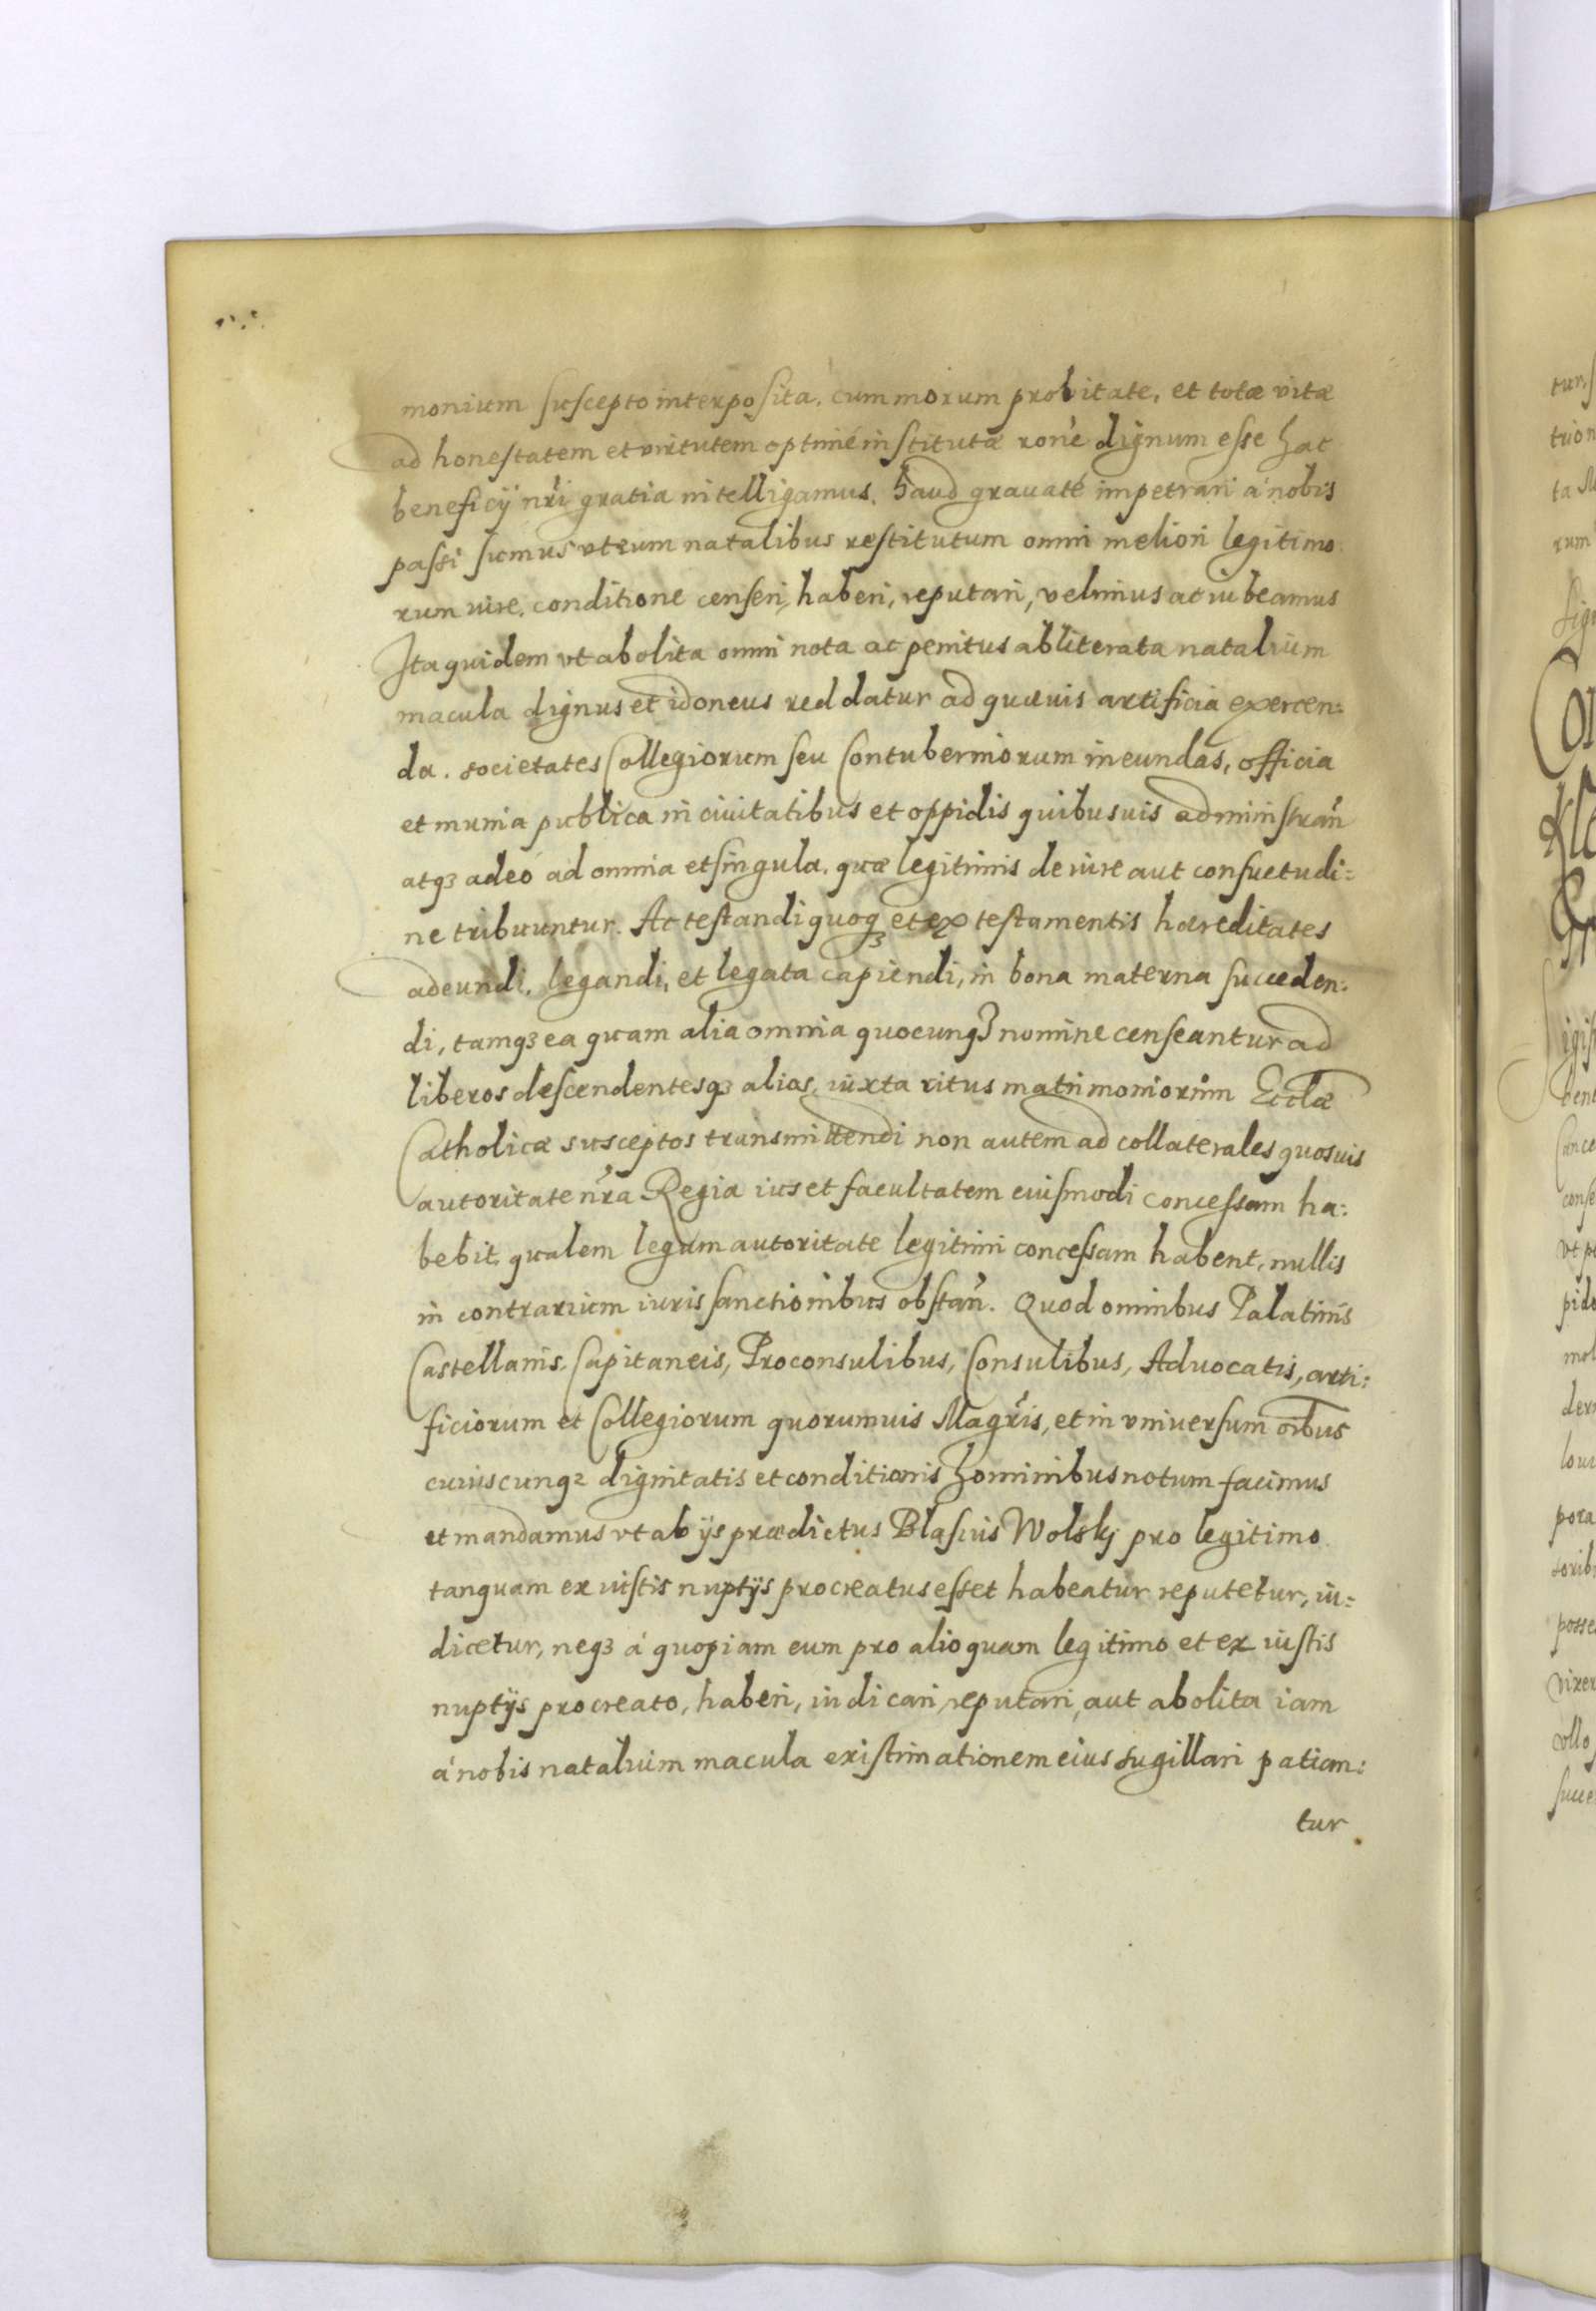 monium suscepto interposita. cum morum probitate, et totæ vitæ
ad honestatem et virtutem optimè institutæ rõne dignum esse hac
beneficÿ nr̃i gratia intelligamus. haud grauatè impetrari à nobis
passi sumus vt eum natalibus restitutum omni meliori legitimo
rum iure, conditione censeri, haberi, reputari, velimus ac iubeamus
Ita quidem vt abolita omni nota ac penitus abliterata natalium
macula dignus et idoneus reddatur ad quæuis artificia exercen:
da. societates Collegiorum seu Contuberniorum ineundas, officia
et munia publica in ciuitatibus et oppidis quibusuis administrañ
atqȝ adeò ad omnia et singula. quæ legitimis de iure aut consuetudi:
ne tribuuntur. Ac testandi quoqȝ et ex testamentis hæreditates
adeundi, legandi, et legata capiendi, in bona materna succeden:
di, tamqȝ ea quam alia omnia quocunqȝ nomine censeantur ad
liberos descendentesqȝ alios, iuxta ritus matrimoniorum Ecclæ
Catholicæ susceptos transmittendi non autem ad collaterales quosuis
autoritate nr̃a Regia ius et facultatem eiusmodi concessam ha:
bebit, qualem legum autoritate legitimi concessam habent, nullis
in contrarium iuris sanctionibus obstañ. Quod omnibus Palatinis
Castellanis, Capitaneis, Proconsulibus, Consulibus, Aduocatis, arti:
ficiorum et Collegiorum quorumuis Magr̃is, et in vniuersum oĩbus
cuiuscunqȝ dignitatis et conditionis hominibus notum facimus
et mandamus vt ab ijs prædictus Blasius Wolskj pro legitimo
tanquam ex iustis nuptijs procreatus esset habeatur reputetur, iu:
dicetur, neqȝ à quopiam eum pro alio quam legitimo et ex iustis
nuptijs procreato, haberi, iudicari, reputari, aut abolita iam
à nobis natalium macula existimationem eius sugillari patian:
tur